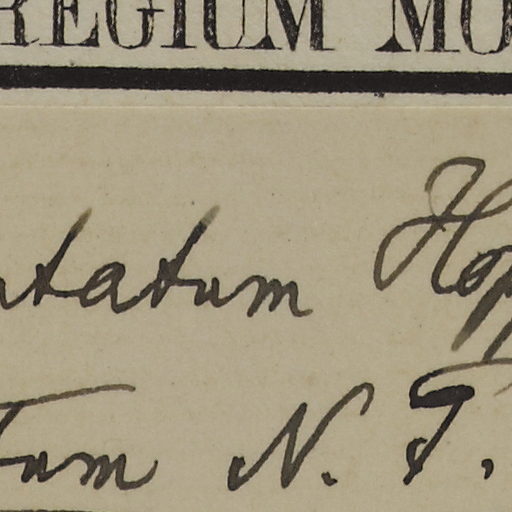 REGIUM MO
ntatum Hopp
Tum N. T.